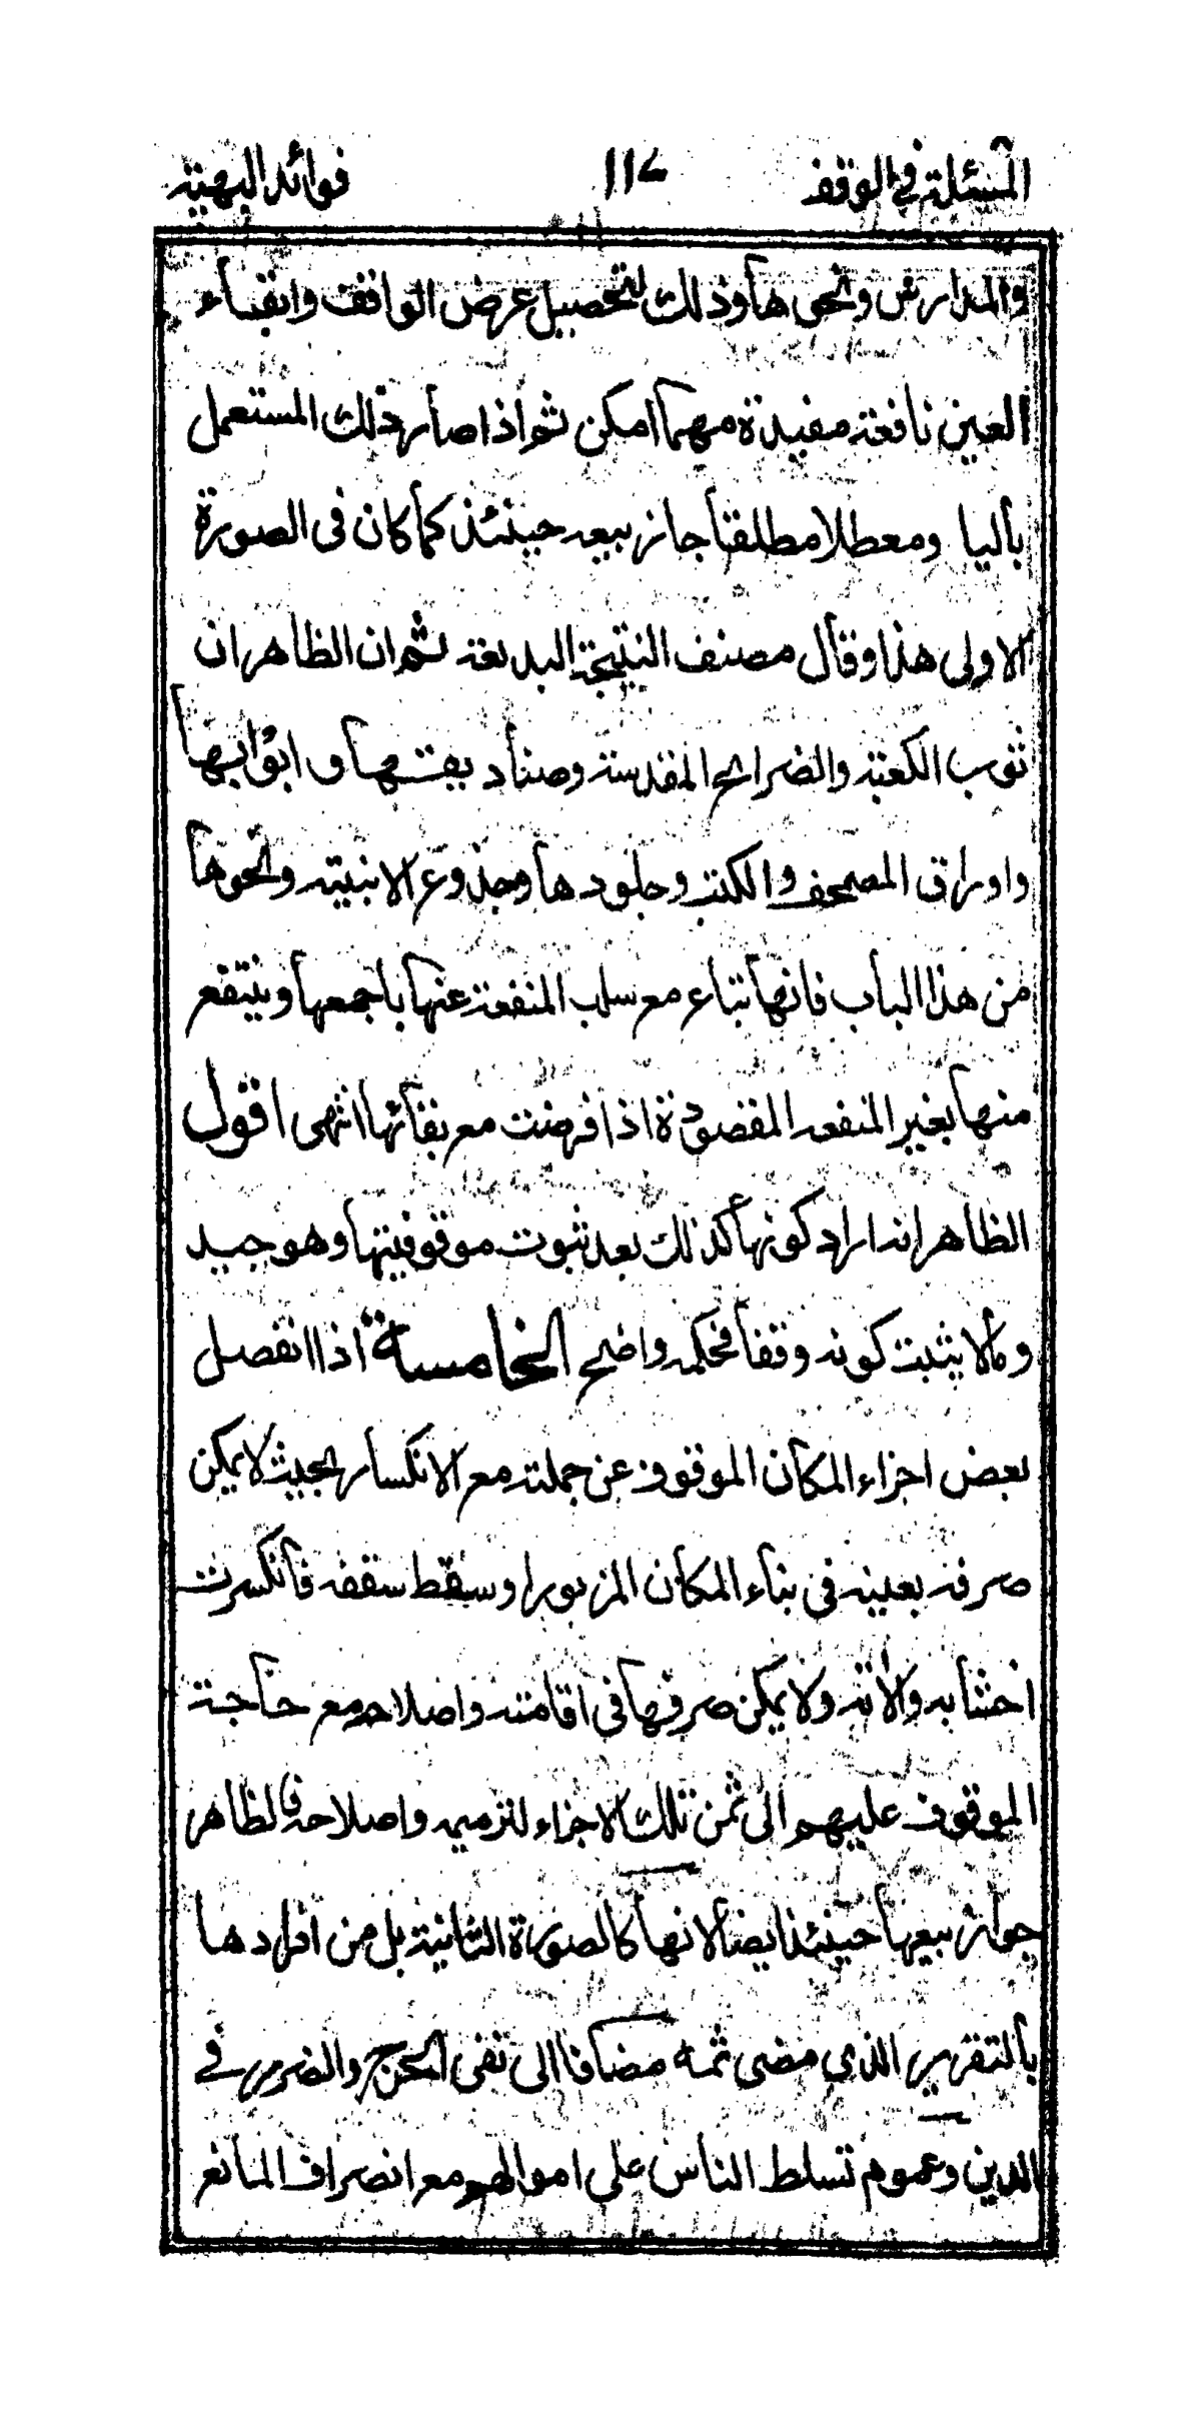 المسئلة في الوقف ١١٤ فوائد البهية
والمدارس ونحوها وذلك لتحصيل غرض الواقف وابقاء
العين نافعة مفيدة مهما امكن ثم اذا صار ذلك المستعمل
باليا ومعطلا مطلقا جاز بيعه حينئذ كما كان في الصورة
الاولى هذا وقال مصنف النتيجة البديعة ثم ان الظاهر ان
ثوب الكعبة والضرائح المقدسة وصناديقها وابوابها
واوراق المصحف والكتب وجلودها وجذوع الابنية ونحوها
من هذا الباب فانها تباع مع سلب المنفعة عنها باجمعها وينتفع
منها بغير المنفعه المقصودة اذا فرضت مع بقائها انتهى اقول
الظاهر انه اراد كونها كذلك بعد ثبوت موقوفيتها وهو جيد
ومالا يثبت كونه وقفا فحكمه واضح الخامسة اذا انفصل
بعض اجزاء المكان الموقوف عن جملته مع الانكسار بحيث لا يمكن
صرفه بعينه في بناء المكان المزبور او سقط سقفه فانكسرت
اخشابه والاته ولا يمكن صرفها في اقامته واصلاحه مع حاجة
الموقوف عليهم الى ثمن تلك الاجزاء لترميمه واصلاحه فالظاهر
جواز بيعها حينئذ ايضا لانها كالصورة الثانية بل من افرادها
بالتقرير الذي مضى ثمه مضافا الى نفى الحرج والضرر في
الدين وعموم تسلط الناس على اموالهم مع انصراف المانع